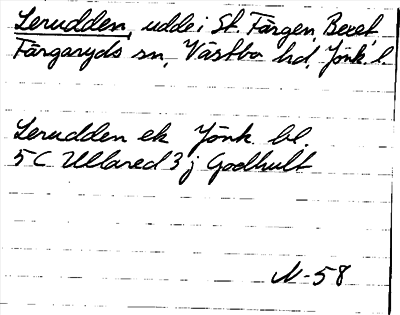 Lerudden, udde i St. Färgen, Beret,
Färgaryds sn, Västbo hd, Jönk. l.
Lerudden ek Jönk. bl.
5 C Ullared 3 j Godhult
N-58